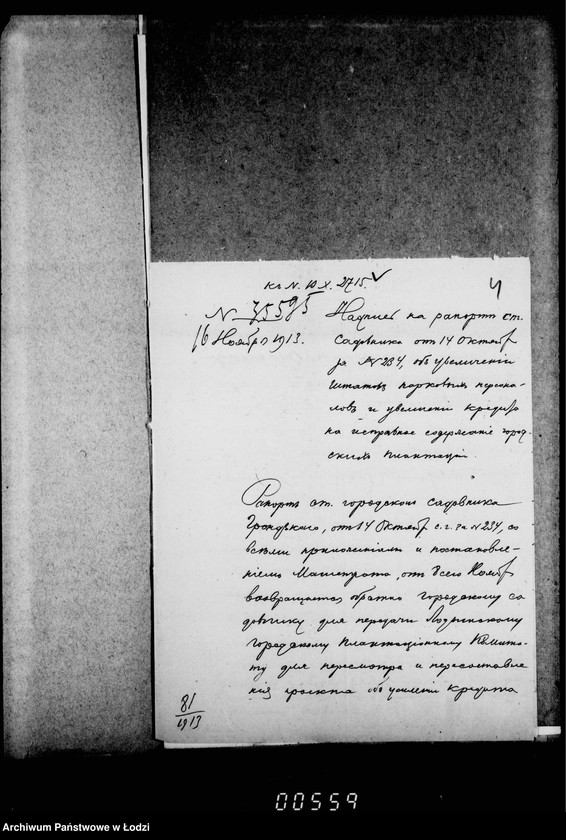 Къ N. 10 X. 2715.
4
N 35595
16 Ноября 1913.
Надпись на рапортѣ ст.
садовника отъ 14 Октября
за № 234, объ увеличеніи
штатовъ парковыхъ персона-
ловъ и увеличеніи кредита
на исправное содержаніе город-
скихъ плантацій.
Рапортъ ст. городского садовника
отъ 14 Октября с. г. за № 234, со
всѣми приложеніями и постановле-
ніемъ Магистрата, отъ 8 сего Ноября
возвращается обратно городскому са
довнику для передачи Лодзинскому
городскому плантаціонному Комите-
ту для пересмотра и пересоставле
нія проекта объ усиленіи кредита
81
1913
00559
Archiwum Państwowe w Łodzi